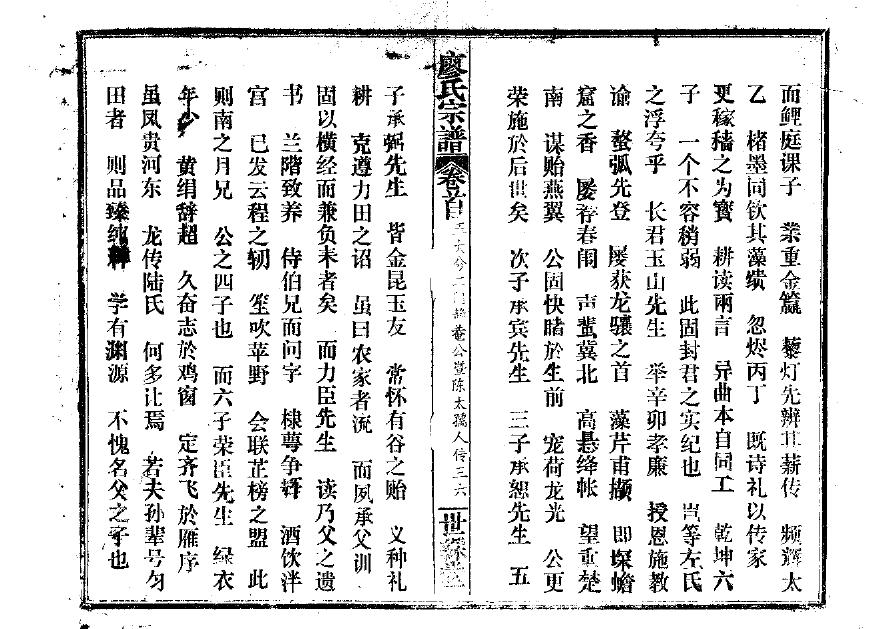 而鲤庭课子 業重金籯 藜灯先辨其薪传 频辉太
乙 楮墨同钦其藻缋 忽烬丙丁 既诗礼以传家
更稼穑之为宝 耕读兩言 异曲本自同工 乾坤六
子 一个不容稍弱 此固封君之实纪也 岂等左氏
之浮夸乎 长君玉山先生 举辛卯孝廉 授恩施教
谕 螯弧先登 屡获龙骧之首 藻芹甫擷 即探蟾
窟之香 屡荐春闱 声蜚冀北 高悬绛帐 望重楚
南 谋贻燕翼 公固快睹於生前 宠荷龙光 公更
荣施於后世矣 次子承宾先生 三子承恕先生 五
廖氏宗譜 卷 菴公暨陈太孺人传三六 世綵堂
子承弼先生 皆金昆玉友 常怀有谷之贻 义种礼
耕 克遵力田之诏 虽曰农家者流 而夙承父训
固以横经而兼负耒者矣 而力臣先生 读乃父之遗
书 兰階致养 侍伯兄而问字 棣萼争辉 酒饮泮
宫 已发云程之轫 笙吹苹野 会联芷榜之盟 此
则南之月兄 公之四子也 而六子荣臣先生 绿衣
年少 黄绢辞超 久奋志於鸡窗 定齐飞於雁序
虽凤贵河东 龙传陆氏 何多让焉 若夫孙辈号匀
田者 则品臻纯粹 学有渊源 不愧名父之子也